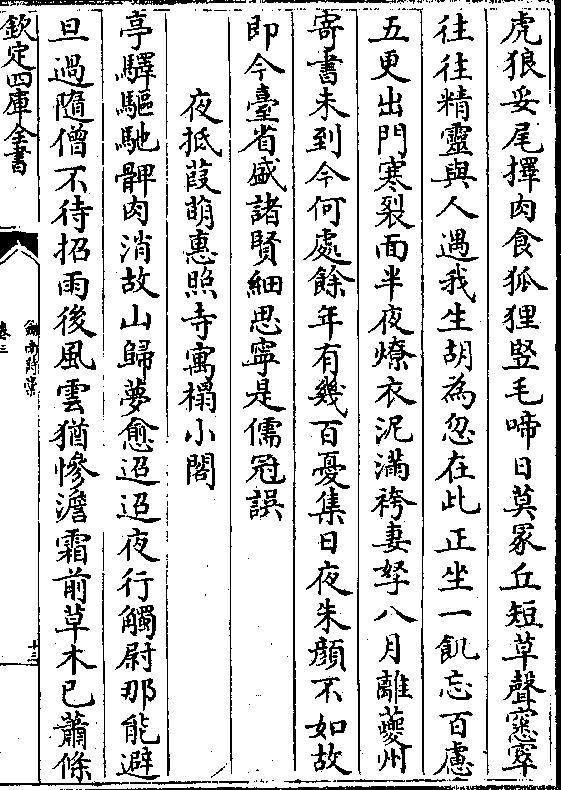 虎狼妥尾擇肉食狐狸竪毛啼日莫冢丘短草聲窸窣
往往精靈與人遇我生胡為忽在此正坐一飢忘百慮
五更出門寒裂面半夜燎衣泥滿袴妻孥八月離夔州
寄書未到今何處餘年有幾百憂集日夜朱顔不如故
即今臺省盛諸賢細思寧是儒冠誤
夜抵葭萌惠照寺寓榻小閣
亭驛驅馳髀肉消故山歸夢愈迢迢夜行觸尉那能避
旦過隨僧不待招雨後風雲猶慘澹霜前草木已蕭條
欽定四庫全書
劍南詩槀
卷三
十三